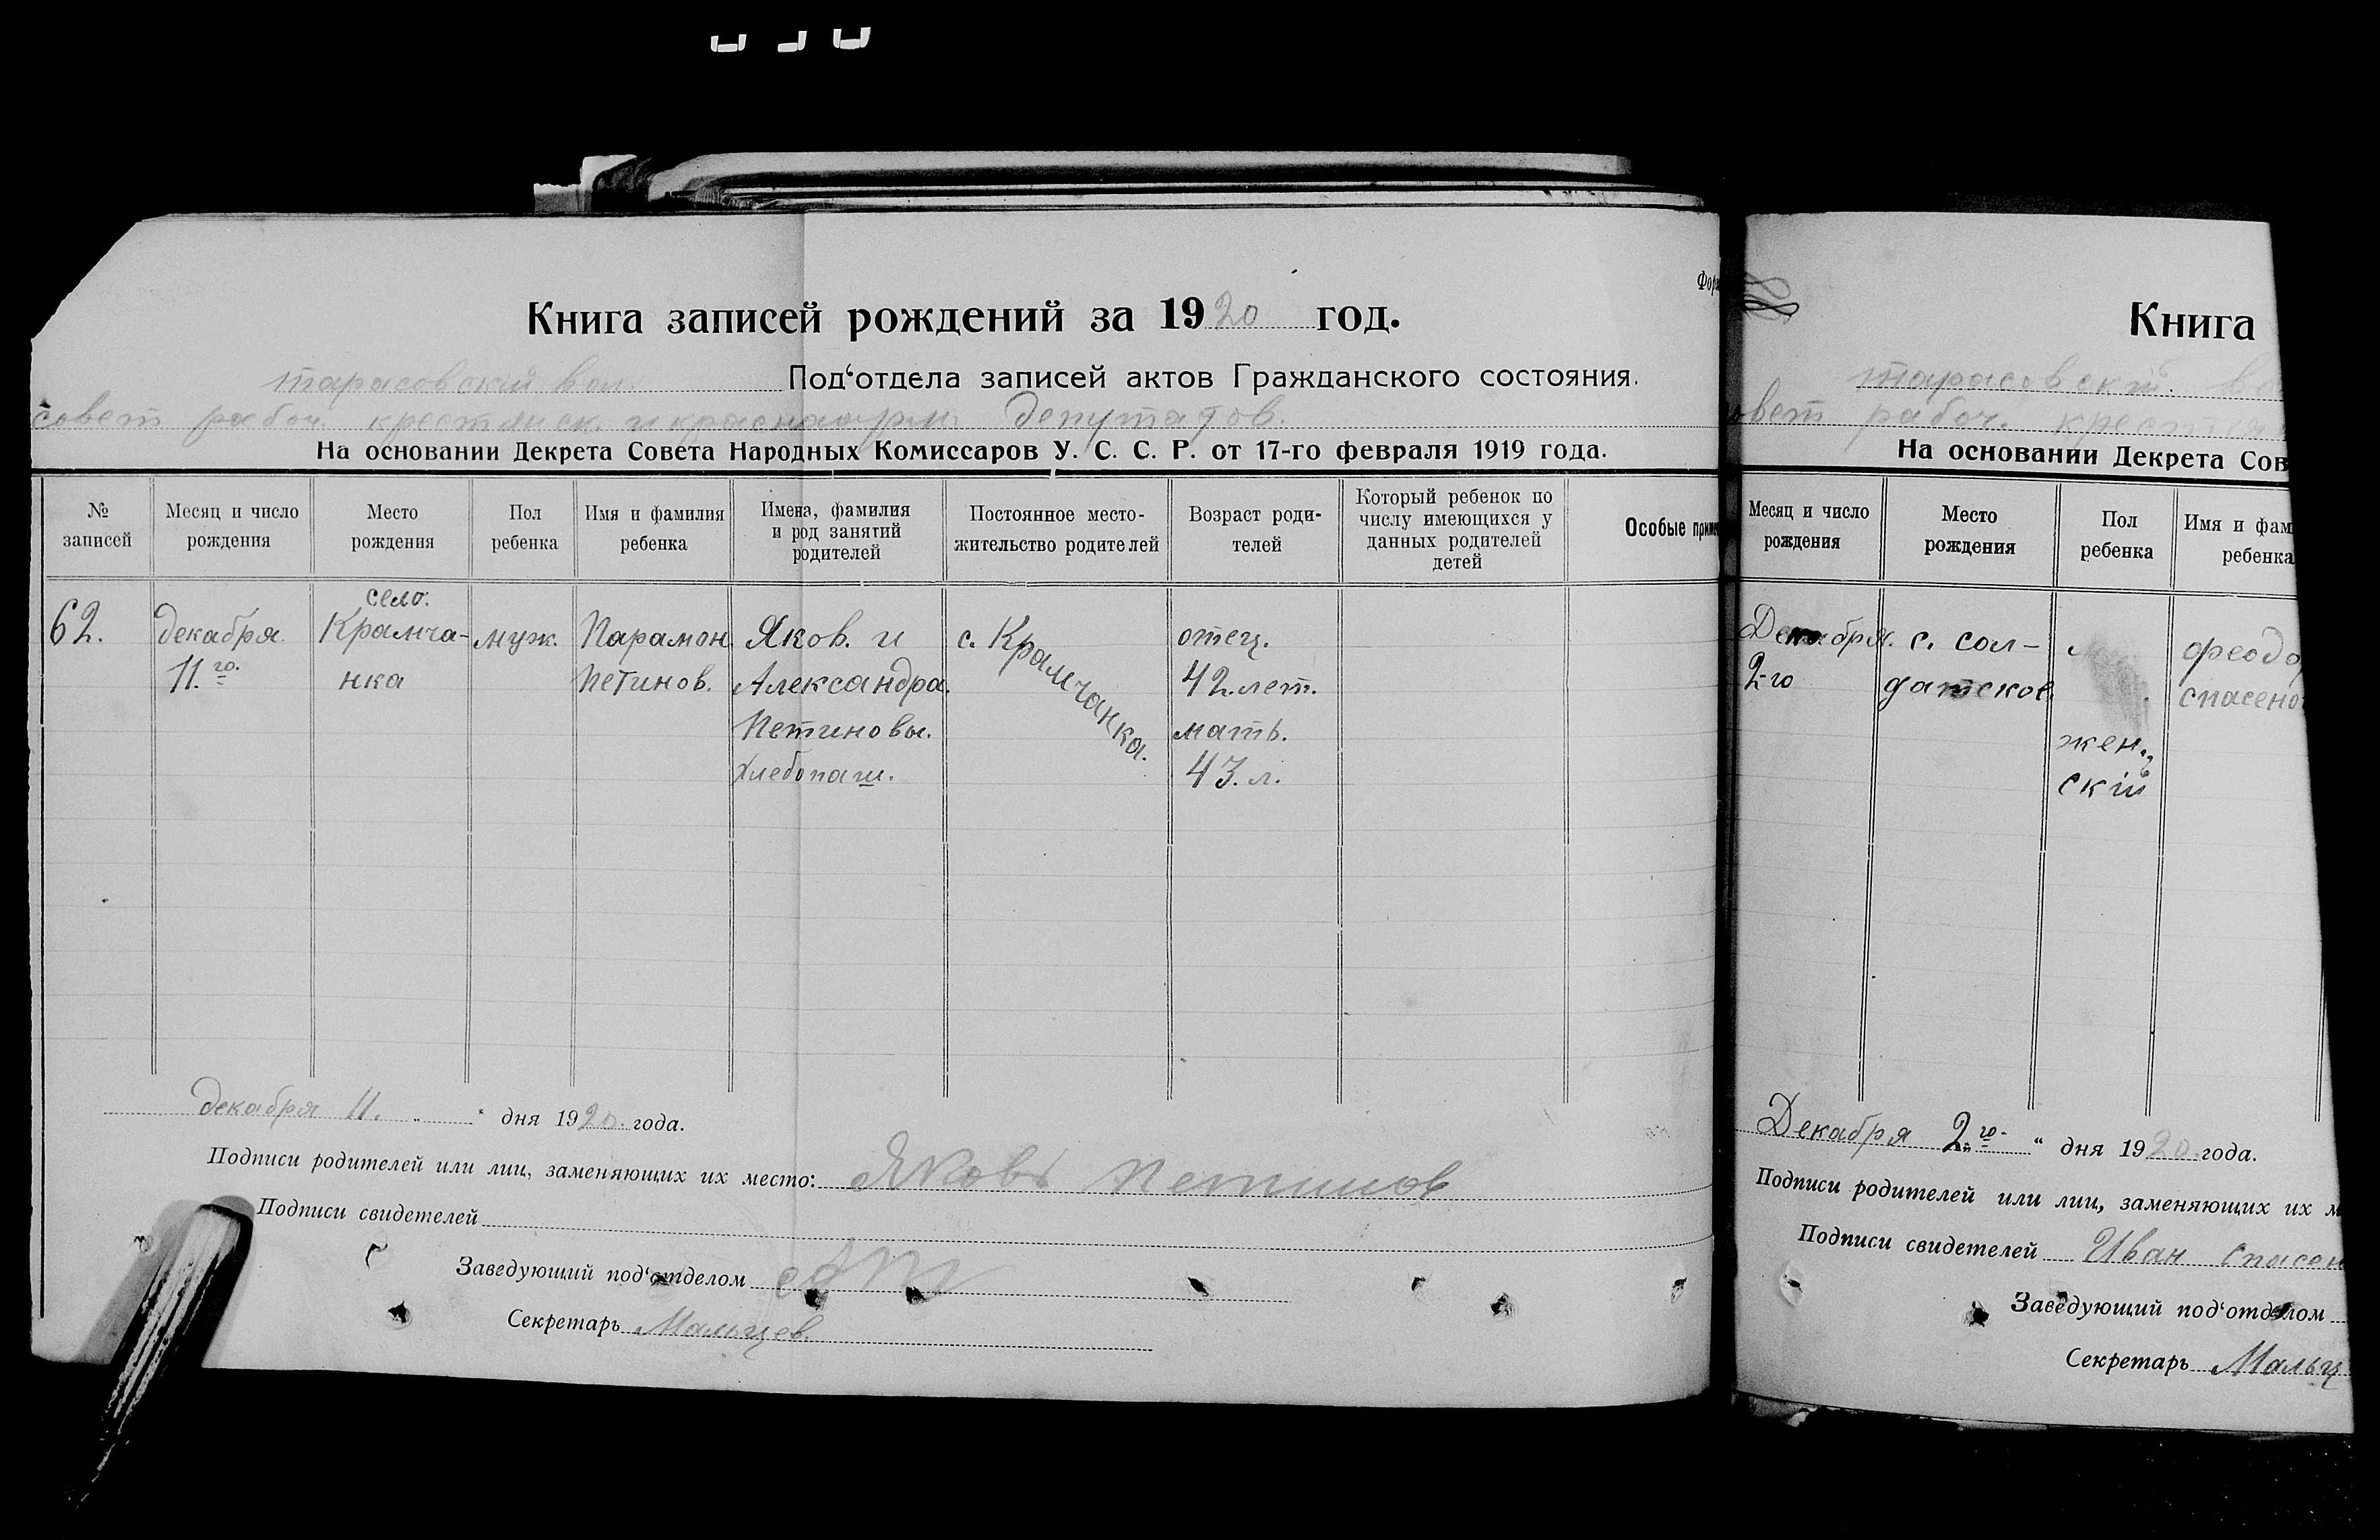 Книга записей рождений за 1920 год.
тарасовскій вол. Под‘отдела записей актов Гражданского состояния.
совет рабоч. крестянск. и красноарм. депутатов.
На основании Декрета Совета Народных Комиссаров У. С. С. Р. от 17-го февраля 1919 года.
№ записей
Месяц и число рождения
Место рождения
Пол ребенка
Имя и фамилия ребенка
Имена, фамилия и род занятий родителей
Постоянное место-жительство родителей
Возраст роди-телей
Который ребенок по числу имеющихся у данных родителей детей
Особые
62.
декабря
11.го
село.
Крамча-
нка
муж.
Парамон
Петинов.
Яков. и
Александра.
Петиновы.
хлебопаш.
с. Крамчанка.
отец.
42 лет.
мать.
43. л.
декабря 11. „ “ дня 1920. года.
Подписи родителей или лиц, заменяющих их место: Яковъ Петинов
Подписи свидетелей
Заведующий под‘отделом
Секретарь Мальцев.
Книга
тарасовскій.
совет рабоч.
На основании Декрета Сов
Месяц и число рождения
Место рождения
Пол ребенка
Имя и фам
ребенка
Декабря.
2-го
с. сол-
датское.
жен-
скій
феодо
спасено
Декабря 2.го “ дня 1920 года.
Подписи родителей или лиц, заменяющих их м
Подписи свидетелей Иван Спасен
Заведующий под‘отделом
Секретарь Мальц